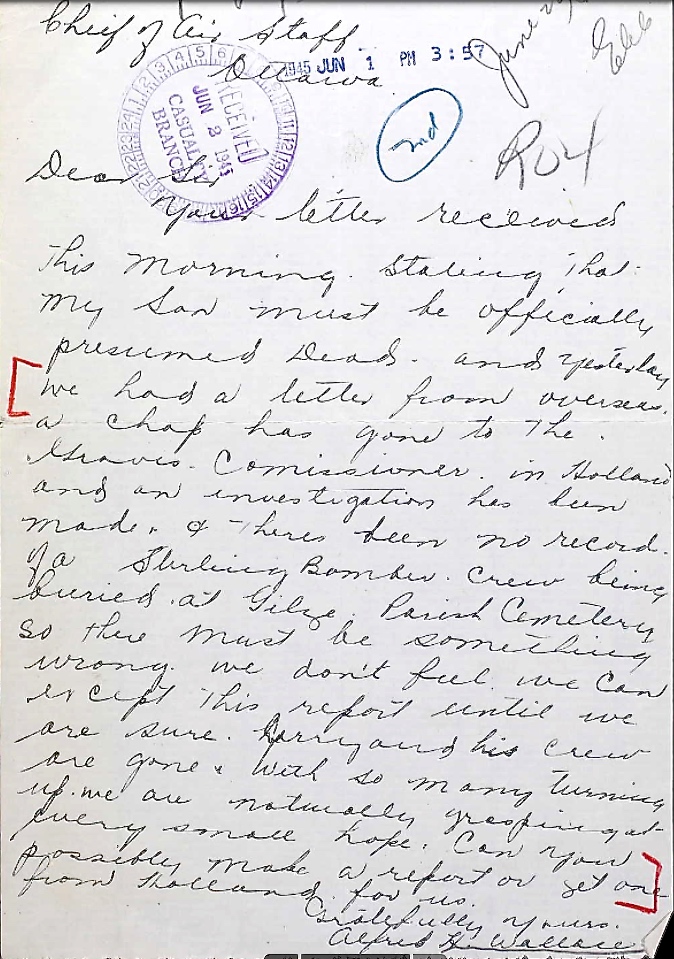 Chief of Air Staff
Ottawa
1945 JUN 1 PM 3:57
June
RECEIVED
JUN 2 1945
CASUALTY
BRANCH
2nd
Dear Sir
Your letter received
This morning. Stating That
my Son must be officially
presumed Dead. and yesterday
we had a letter from overseas.
a chap has gone to The.
Graves. Comissioner. in Holland
and an investigation has been
made. & Theres been no record.
of a Sterling Bomber. Crew being
buried. at Gilze. Parish Cemetery
so there must be something
wrong. we don't feel we can
except This report until we
are sure. Harry and his crew
are gone. With so many turning
up. we are naturally grasping at
every small hope. Can you
possibly make a report or get one
from Holland. for us.
Gratefully yours.
Alfred H. Wallace